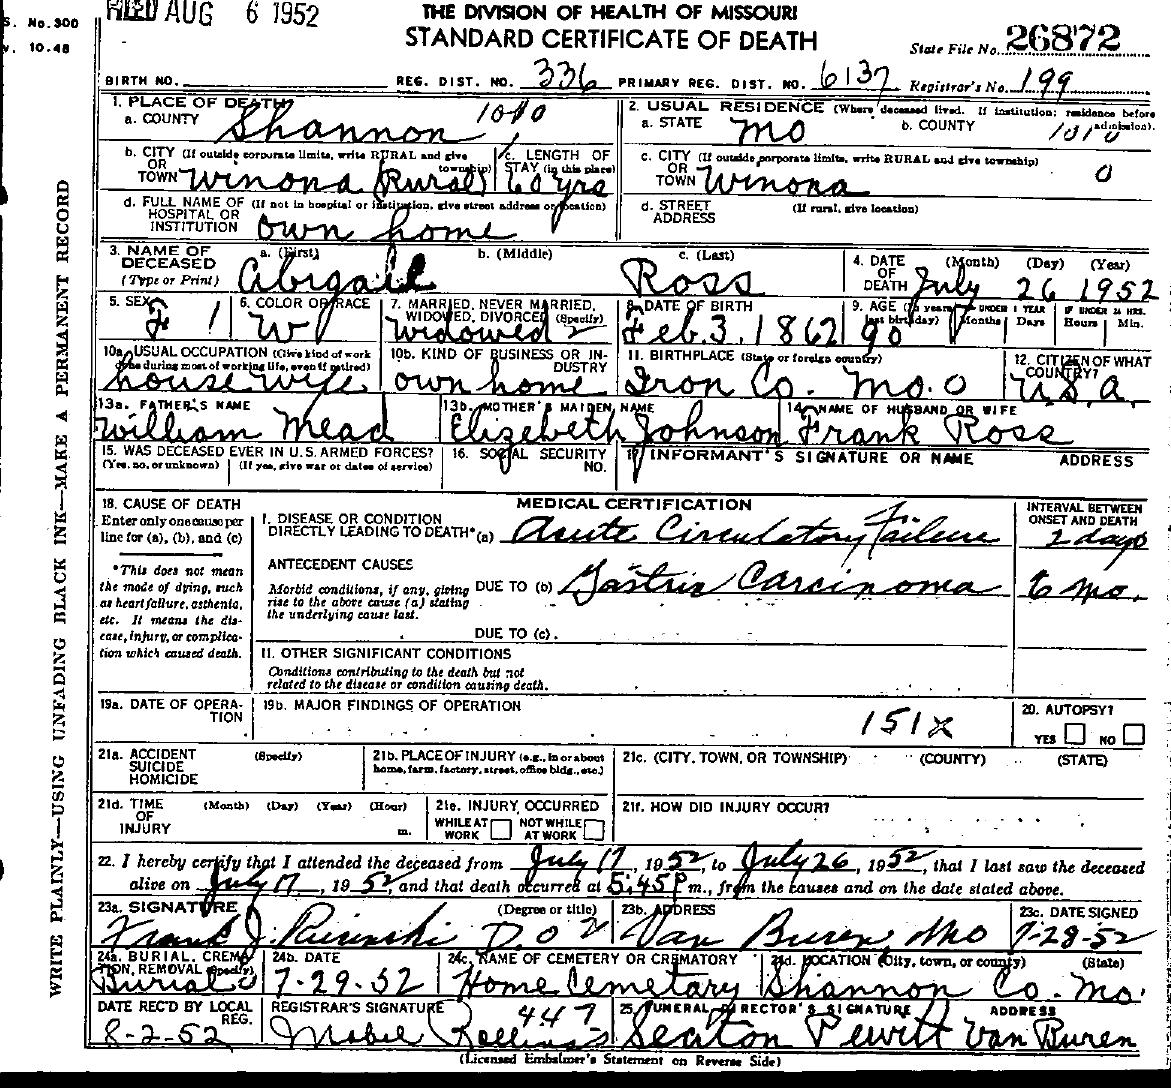 FILED AUG 6 1952
S. No. 300
v. 10-48
THE DIVISION OF HEALTH OF MISSOURI
STANDARD CERTIFICATE OF DEATH
State File No. 26872
BIRTH NO. REG. DIST. NO. 336 PRIMARY REG. DIST. NO. 6137 Registrar's No. 199
1. PLACE OF DEATH
a. COUNTY Shannon 1010
2. USUAL RESIDENCE (Where deceased lived. If institution; residence before admission).
a. STATE Mo b. COUNTY 1010
b. CITY (If outside corporate limits, write RURAL and give township) OR TOWN Winona (Rural)
c. LENGTH OF STAY (in this place) 60 yrs
c. CITY (If outside corporate limits, write RURAL and give township) OR TOWN Winona 0
d. FULL NAME OF HOSPITAL OR INSTITUTION (If not in hospital or institution, give street address or location) own home
d. STREET ADDRESS (If rural, give location)
3. NAME OF DECEASED (Type or Print)
a. (First) Abigail b. (Middle) c. (Last) Ross
4. DATE OF DEATH (Month) (Day) (Year) July 26 1952
5. SEX F 1
6. COLOR OR RACE W
7. MARRIED, NEVER MARRIED, WIDOWED, DIVORCED (Specify) Widowed 2
8. DATE OF BIRTH Feb. 3, 1862
9. AGE (In years last birthday) 90 IF UNDER 1 YEAR Months Days IF UNDER 24 HRS. Hours Min.
10a. USUAL OCCUPATION (Give kind of work done during most of working life, even if retired) house wife
10b. KIND OF BUSINESS OR INDUSTRY own home
11. BIRTHPLACE (State or foreign country) Iron Co. Mo. 0
12. CITIZEN OF WHAT COUNTRY? U.S.A.
13a. FATHER'S NAME William Mead
13b. MOTHER'S MAIDEN NAME Elizebeth Johnson
14. NAME OF HUSBAND OR WIFE Frank Ross
15. WAS DECEASED EVER IN U.S. ARMED FORCES? (Yes, no, or unknown) (If yes, give war or dates of service)
16. SOCIAL SECURITY NO.
17. INFORMANT'S SIGNATURE OR NAME ADDRESS
18. CAUSE OF DEATH
Enter only one cause per line for (a), (b), and (c)
*This does not mean the mode of dying, such as heart failure, asthenia, etc. It means the disease, injury, or complication which caused death.
MEDICAL CERTIFICATION
INTERVAL BETWEEN ONSET AND DEATH
I. DISEASE OR CONDITION DIRECTLY LEADING TO DEATH* (a) Acute Circulatory Failure 2 days
ANTECEDENT CAUSES
Morbid conditions, if any, giving rise to the above cause (a) stating the underlying cause last.
DUE TO (b) Gastric Carcinoma 6 mo.
DUE TO (c)
11. OTHER SIGNIFICANT CONDITIONS
Conditions contributing to the death but not related to the disease or condition causing death.
19a. DATE OF OPERATION
19b. MAJOR FINDINGS OF OPERATION 151X
20. AUTOPSY? YES NO
21a. ACCIDENT SUICIDE HOMICIDE (Specify)
21b. PLACE OF INJURY (e.g., in or about home, farm, factory, street, office bldg., etc.)
21c. (CITY, TOWN, OR TOWNSHIP) (COUNTY) (STATE)
21d. TIME OF INJURY (Month) (Day) (Year) (Hour) m.
21e. INJURY OCCURRED WHILE AT WORK NOT WHILE AT WORK
21f. HOW DID INJURY OCCUR?
22. I hereby certify that I attended the deceased from July 17, 1952, to July 26, 1952, that I last saw the deceased
alive on July 17, 1952, and that death occurred at 5:45 P m., from the causes and on the date stated above.
23a. SIGNATURE (Degree or title) Frank J. D.O 2
23b. ADDRESS Van Buren, Mo
23c. DATE SIGNED 7-28-52
24a. BURIAL, CREMATION, REMOVAL (Specify) Burial
24b. DATE 7-29-52
24c. NAME OF CEMETERY OR CREMATORY Home Cemetary
24d. LOCATION (City, town, or county) (State) Shannon Co. Mo.
DATE REC'D BY LOCAL REG. 8-2-52
REGISTRAR'S SIGNATURE Mabel Rollins 447
25. FUNERAL DIRECTOR'S SIGNATURE ADDRESS Seaton Pewitt Van Buren
(Licensed Embalmer's Statement on Reverse Side)
WRITE PLAINLY—USING UNFADING BLACK INK—MAKE A PERMANENT RECORD